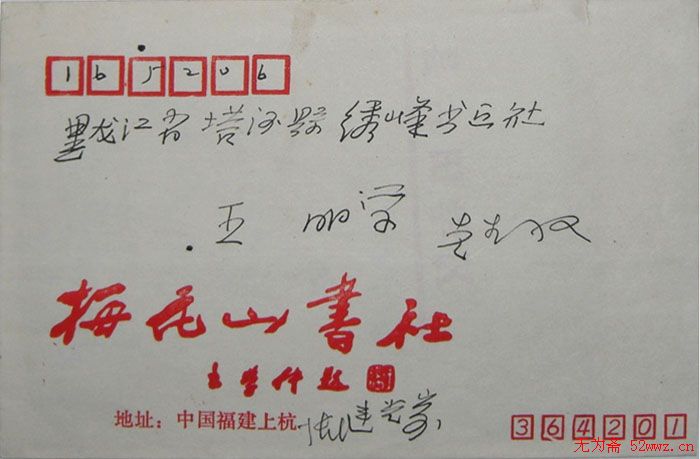 165206
黑龙江省塔河县绣峰书画社
王 明学 先生收
梅花山书社
地址：中国福建上杭
364201
无为斋 52wwz.cn